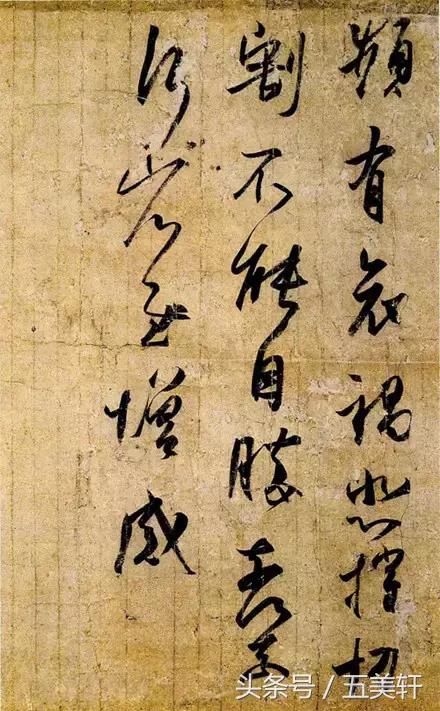 頻有哀禍悲摧切
割不能自勝奈何奈
何省慰增感
头条号 / 五美轩